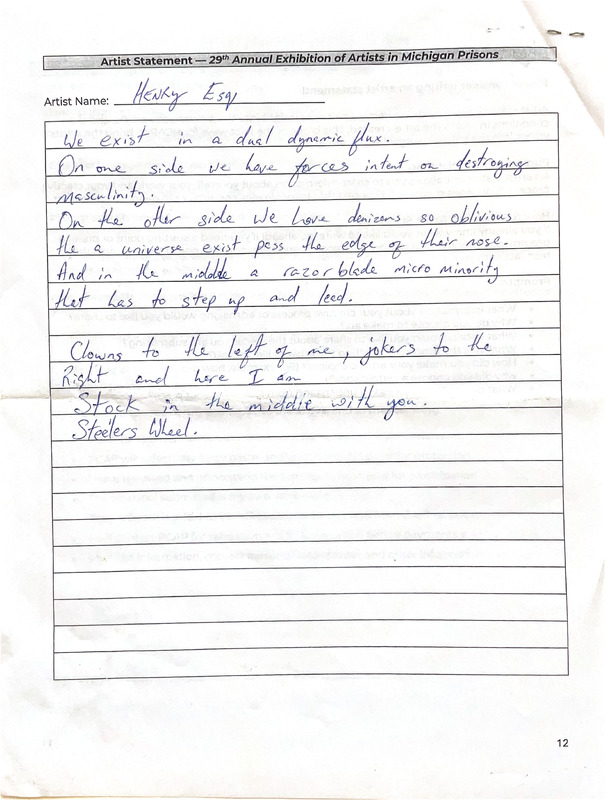 Artist Statement — 29th Annual Exhibition of Artists in Michigan Prisons
Artist Name: Henky Esq
We exist in a dual dynamic flux.
On one side we have forces intent on destroying
masculinity.
On the other side we have denizens so oblivious
the a universe exist pass the edge of their nose.
And in the middle a razorblade micro minority
that has to step up and lead.
Clowns to the left of me, jokers to the
Right and here I am
Stock in the middle with you.
Steelers Wheel.
12